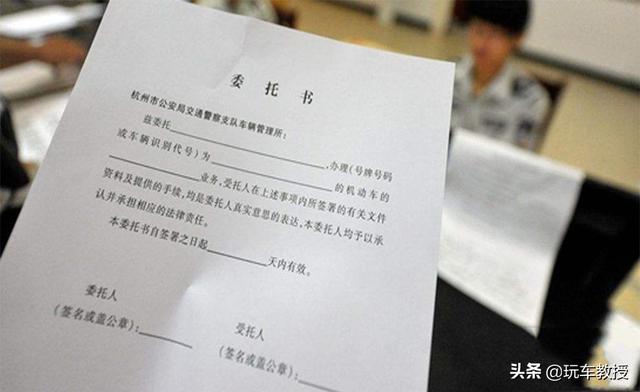 委托书
杭州市公安局交通警察支队车辆管理所:
兹委托____________,办理(号牌号码
或车辆识别代号)为____________的机动车的
____________业务,受托人在上述事项内所签署的有关文件
资料及提供的手续,均是委托人真实意思的表达,本委托人均予以承
认并承担相应的法律责任。
本委托书自签署之日起________天内有效。
委托人
(签名或盖公章):________
受托人
(签名或盖公章):________
头条 @玩车教授